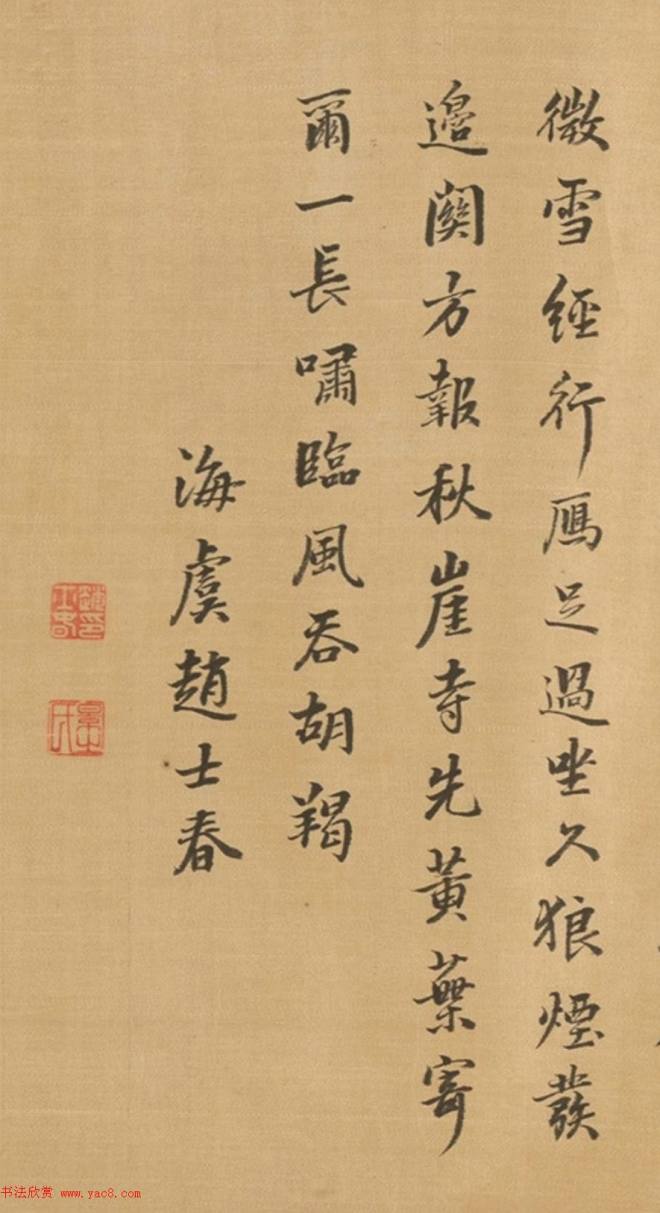 微雪經行鴈足過坐久狼煙發
邉関方報秋崖寺先黃葉寄
爾一長嘯臨風吞胡羯
海虞趙士春
趙士春印
书法欣赏 www.yac8.com